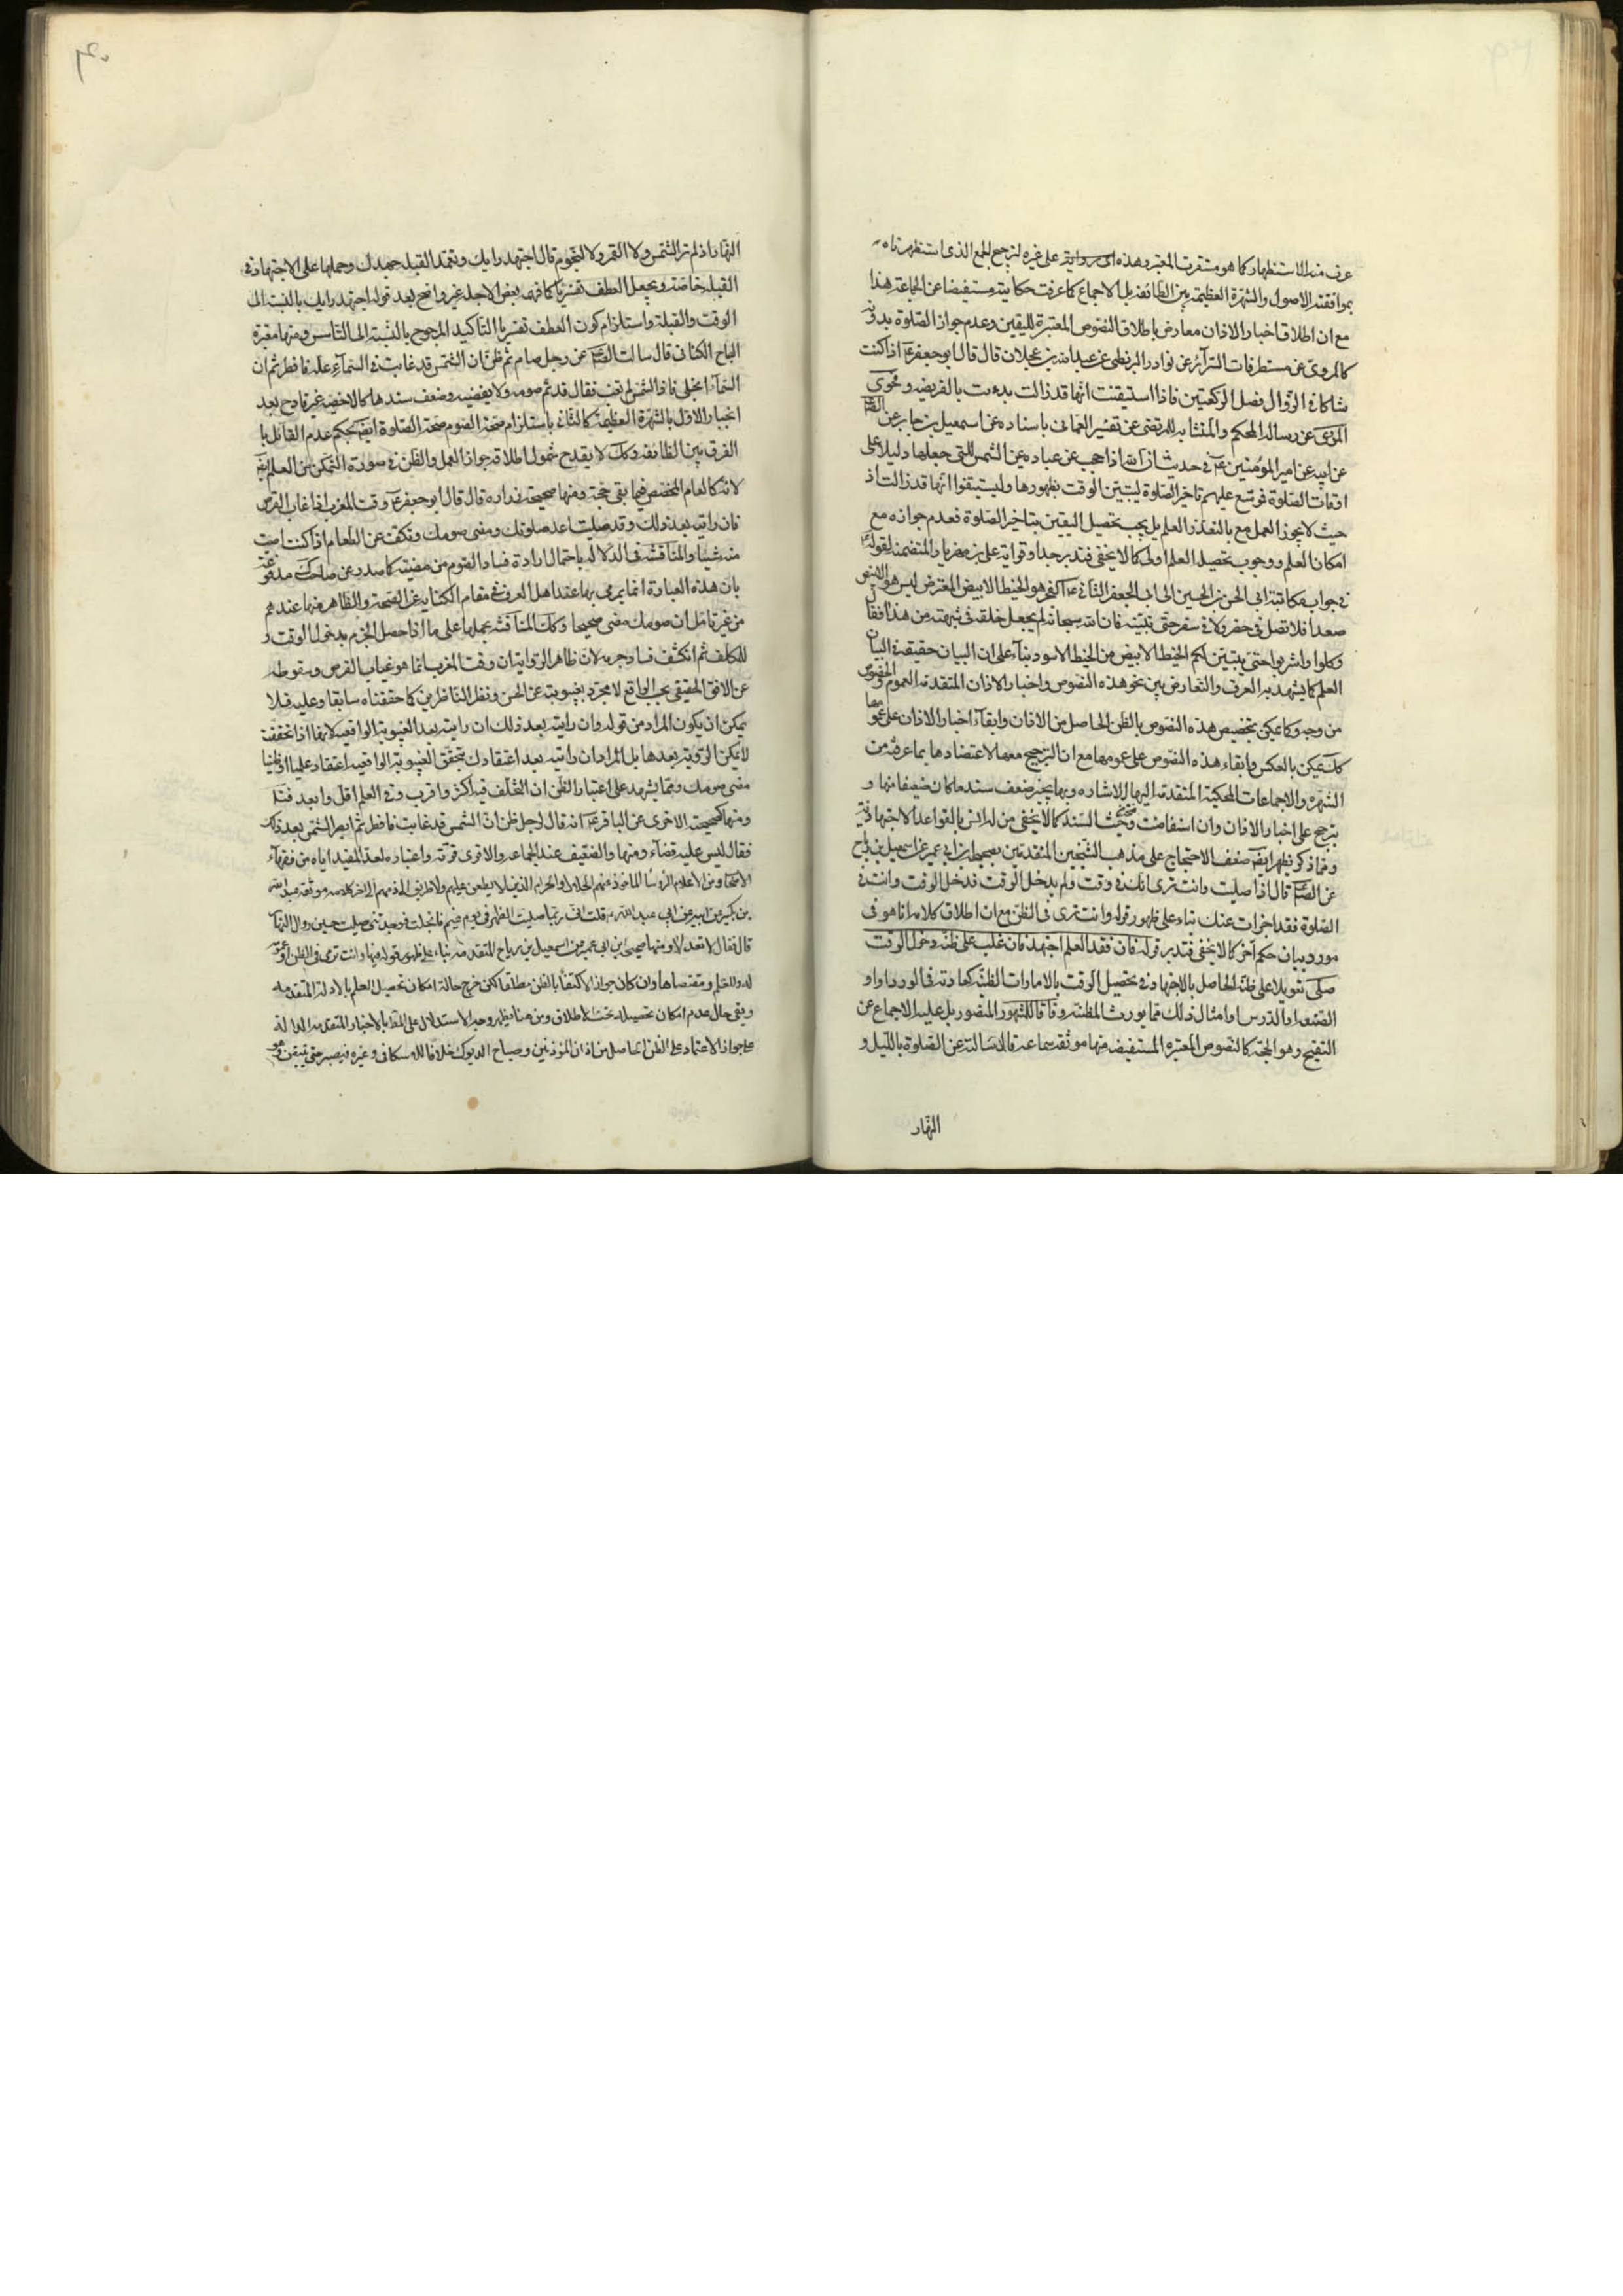 عرف منه الاستنظهار كما هو مستقرب المعتبر وهذه على غيره لترجيح الجمع الذى استظهرناه
بموافقته الاصول والشهرة العظيمة بين الطائفة بل الاجماع كما عرفت حكايته مستفيضا عن الجماعة هذا
مع ان اطلاق اخبار الاذان معارض باطلاق النصوص المعتبرة لليقين وعدم جواز الصلوة بدونه
كالمروى عن مستطرفات السرائر عن نوادر البزنطى عن عبد الله بن عجلان قال قال ابو جعفر ع اذا كنت
شاكا فى الزوال فصل الركعتين فاذا استيقنت انها قد زالت بدءت بالفريضه وفحوى
المروى عن رسالة المحكم والمتشابه للمرتضى عن تفسير النعمانى باسناده عن اسمعيل بن جابر عن الصم
عن ابيه عن امير المؤمنين ع فى حديث ان الله اذا حجب عن عباده عين الشمس التى جعلها دليلا على
اوقات الصلوة فموسع عليهم تاخير الصلوة ليتبين الوقت بظهورها وليستيقنوا انها قد زالت اذ
حيث لا يجوز العمل مع بالتعذر العلم بل يجب تحصيل اليقين بتاخير الصلوة فعدم جوازه مع
امكان العلم ووجوب تحصيل العلم اولى كما لا يخفى فتدبر جدا وقوايه على بن مهزيار المتضمنه لقوله ع
فى جواب مكاتبة ابى الحسن بن الحسين الى ابى الجعفر الثانى ع الفجر هو الخيط الابيض المعترض ليس هو الابيض
صعدا فلا تصل فى حضر ولا فى سفر حتى تبينه فان الله سبحانه لم يجعل خلقه فى شبهة من هذا فقال
وكلوا واشربوا حتى يتبين لكم الخيط الابيض من الخيط الاسود بناء على ان البيان حقيقة فى البيان
العلم كما يشهد به العرف والتعارض بين نحو هذه النصوص واخبار الاذان المتقدمة العموم والخصوص
من وجه وكما يمكن تخصيص هذه النصوص بالظن الحاصل من الاذان وابقاء اخبار الاذان على عمومها
كك يمكن بالعكس وابقاء هذه النصوص على عمومها مع ان الترجيح معها لاعتضادها بما عرفته من
الشهرة والاجماعات المحكية المتقدمة اليها الاشاره وبها ينجبر ضعف سند ما كان ضعيفا منها و
يترجح على اخبار الاذان وان استفاضت وصحت السند كما لا يخفى من له انس بالقواعد الاجتهادية
ومما ذكر يظهر ايضا ضعف الاحتجاج على مذهب الشيخين المتقدمين بصحيحة ابن ابى عمير عن اسمعيل بن رباح
عن الصم قال اذا صليت وانت ترى انك فى وقت ولم يدخل الوقت فدخل الوقت وانت فى
الصلوة فقد اجزات عنك بناء على ظهور قوله وانت ترى فى الظن مع ان اطلاق كلامه انما هو فى
مورد بيان حكم آخر كما لا يخفى فتدبر قوله فان فقد العلم اجتهد فان غلب على ظنه دخول الوقت
صلى تعويلا على ظنه الحاصل بالاجتهاد فى تحصيل الوقت بالامارات الظنية كعادته فى الورد او او
الصنعة او الدرس او امثال ذلك مما يورث المظنة وفاقا للمشهور المنصور بل عليه الاجماع عن
التنقيح وهو الحجة كالنصوص المعتبرة المستفيضه منها موثقه سماعه قال سالته عن الصلوة بالليل و
النهار
النهار اذا لم تر الشمس ولا القمر ولا النجوم قال اجتهد رايك وتعمد القبله جهدك وحملها على الاجتهاد فى
القبله خاصة ويجعل العطف تفسيريا كما فهمه بعض الاجله غير واضح بعد قوله اجتهد رايك بالنسبة الى
الوقت والقبلة واستلزام كون العطف تفسيريا التاكيد المرجوح بالنسبة الى التاسيس ومنها معتبرة
ابى الصباح الكنانى قال سالت الصم عن رجل صام ثم ظن ان الشمس قد غابت وفى السماء علة فافطر ثم ان
السماء انجلى فاذا الشمس لم تغب فقال قد تم صومه ولا يقضيه وضعف سندها كالاخصيه غير قادح بعد
انجبار الاول بالشهرة العظيمة كالثانى باستلزام صحة الصوم صحة الصلوة ايضا بحكم عدم القائل با
الفرق بين الطائفه وكك لا يقدح شمول اطلاقه جواز العمل والظن فى صورة التمكن من العلم ايضا
لانه كالعام المخصص فيما بقى حجة ومنها صحيحة زراره قال قال ابو جعفر ع وقت المغرب اذا غاب القرص
فان رايته بعد ذلك وقد صليت اعد صلوتك ومضى صومك وتكف عن الطعام اذا كنت اصبت
منه شيئا والمناقشه فى الدلاله باحتمال ارادة فساد الصوم من مضيه كما صدر عن صاحب ك مدفوعة
بان هذه العبارة انما يرمى بها عند اهل العرف فى مقام الكنايه عن الصحة والظاهر منها عندهم
من غير تامل ان صومك مضى صحيحا وكك المناقشه بحملها على ما اذا حصل الجزم بدخول الوقت و
للمكلف ثم انكشف فساد جزمه لان ظاهر الرواية ان وقت المغرب انما هو غياب القرص وسقوطه
عن الافق الحقيقى بحسب الواقع لا مجرد غيبوبته عن الحس ونظر الناظرين كما حققناه سابقا وعليه فلا
يمكن ان يكون المراد من قوله وان رايته بعد ذلك ان رايته بعد الغيبوبة الواقعيه لانها اذا تحققت
لا يمكن الرؤية بعدها بل المراد ان رايته بعد اعتقادك بتحقق الغيبوبة الواقعيه اعتقادا علميا او ظنيا
مضى صومك ومما يشهد على اعتبار الظن ان التخلف فيه اكثر واقرب وفى العلم اقل وابعد فتامل
ومنها صحيحته الاخرى عن الباقر ع انه قال لرجل ظن ان الشمس قد غابت فافطر ثم ابصر الشمس بعد ذلك
فقال ليس عليه قضاء ومنها والضعيف عند الجماعه والاقوى قوته واعتباره لعد المفيد اياه من فقهاء
الاصحاب ومن الاعلام الرؤسا الماخوذ منهم الحلال والحرام الذين لا يطعن عليهم ولا طريق الى ذمهم الى آخر كلامه موثقه عبد الله
بن بكير عن ابيه عن ابى عبد الله ع قلت انى ربما صليت الظهر فى يوم غيم فانجلت فوجدتنى صليت حين زوال النهار
قال فقال لا تعد لا ومنها صحيحة ابن ابى عمير عن اسمعيل بن رباح المتقدمه بناء على ظهور قوله فيها وانت ترى فى الظن او عمومه
له وللعلم ومقتضاها وان كان جواز الاكتفاء بالظن مطلقا لكن خرج حالة امكان تحصيل العلم بالادلة المتقدمه
وبقى حال عدم امكان تحصيله تحت الاطلاق ومن هنا يظهر وجه الاستدلال على المط بالاخبار المتقدمه الدالة
على جواز الاعتماد على الظن الحاصل من اذان المؤذنين وصياح الديوك خلافا للاسكافى وغيره فيصبر حتى يتيقن وهو